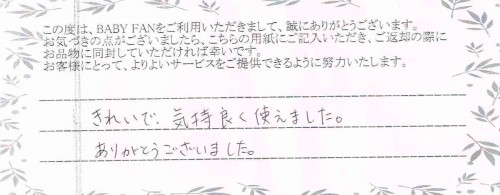 この度は、BABY FANをご利用いただきまして、誠にありがとうございます。
お気づきの点がございましたら、こちらの用紙にご記入いただき、ご返却の際に
お品物に同封していただければ幸いです。
お客様にとって、よりよいサービスをご提供できるように努力いたします。
きれいで、気持良く使えました。
ありがとうございました。